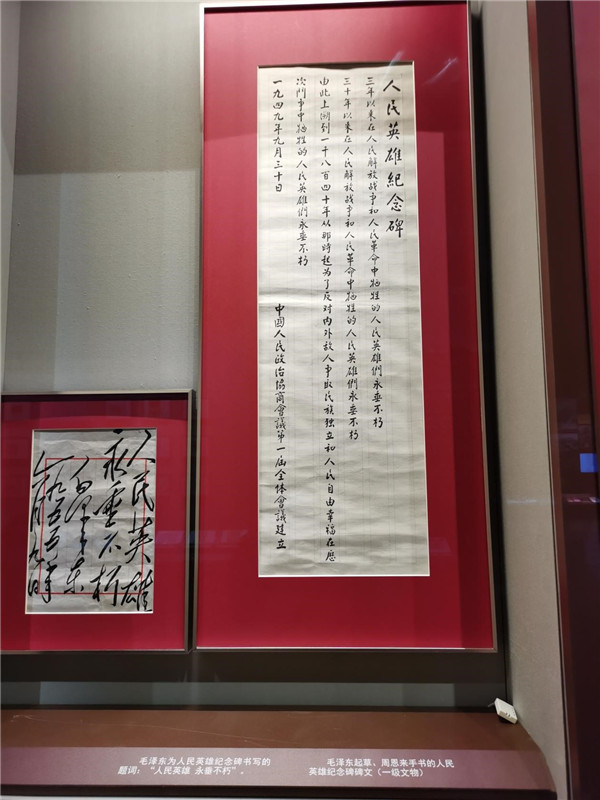 人民英雄紀念碑
三年以来在人民解放战争和人民革命中牺牲的人民英雄們永垂不朽
三十年以来在人民解放战争和人民革命中牺牲的人民英雄們永垂不朽
由此上溯到一千八百四十年从那時起为了反对内外敌人争取民族独立和人民自由幸福在歷
次鬥争中牺牲的人民英雄們永垂不朽
一九四九年九月三十日
中國人民政治協商會議第一届全体會議建立
人民英雄
永垂不朽
毛泽东
一九五五年
六月九日
毛泽东为人民英雄纪念碑书写的
题词：“人民英雄 永垂不朽”。
毛泽东起草、周恩来手书的人民
英雄纪念碑碑文（一级文物）